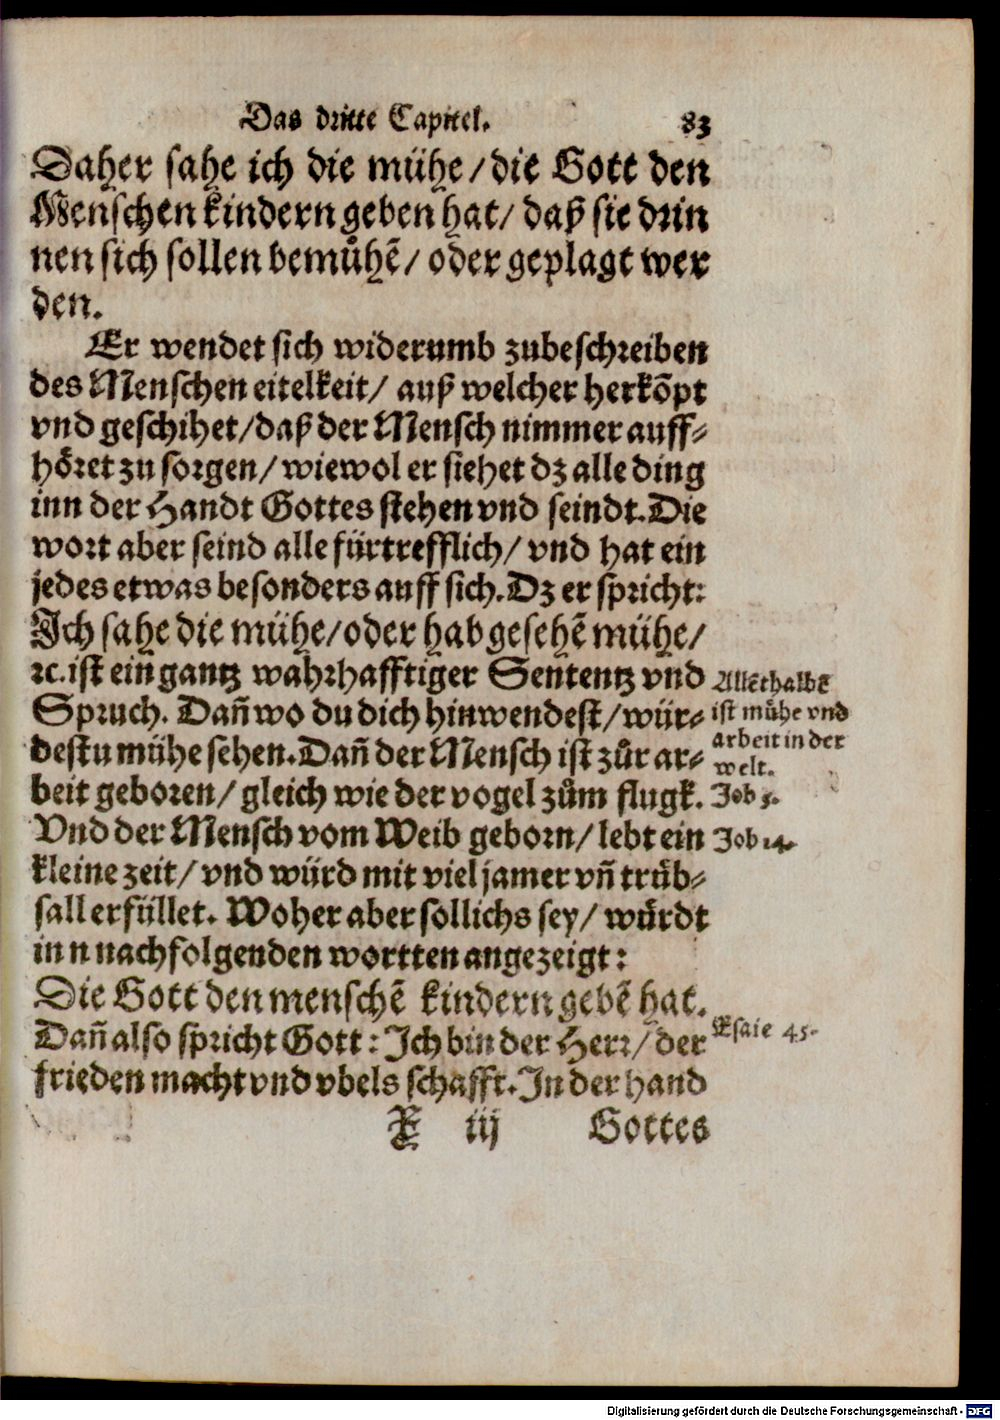 Das dritte Capitel. 83
Daher sahe ich die mühe/die Gott den
Menschen kindern geben hat/ daß sie drin
nen sich sollen bemůhẽ/ oder geplagt wer
den.
Er wendet sich widerumb zubeschreiben
des Menschen eitelkeit/ auß welcher herkõpt
vnd geschihet/daß der Mensch nimmer auff⸗
hôret zu sorgen/ wiewol er siehet dz alle ding
inn der Handt Gottes stehen vnd seindt. Die
wort aber seind alle fürtrefflich/ vnd hat ein
jedes etwas besonders auff sich. Dz er spricht:
Ich sahe die mühe/oder hab gesehẽ mühe/
ꝛc. ist ein gantz wahrhafftiger Sententz vnd
Allẽthalbẽ
Spruch. Dañ wo du dich hinwendest/wür⸗
ist mühe vnd
destu mühe sehen. Dañ der Mensch ist zůr ar⸗
arbeit in der
welt.
beit geboren/ gleich wie der vogel zům flugk.
Job 5.
Vnd der Mensch vom Weib geborn/ lebt ein
Job 14.
kleine zeit/ vnd würd mit viel jamer vñ trůb⸗
sall erfüllet. Woher aber sollichs sey/ wůrdt
in n nachfolgenden wortten angezeigt:
Die Gott den menschẽ kindern gebẽ hat.
Dañ also spricht Gott: Ich bin der Herr/ der
Esaie 45.
frieden macht vnd vbels schafft. In der hand
X iij Gottes
Digitalisierung gefördert durch die Deutsche Forschungsgemeinschaft - DFG